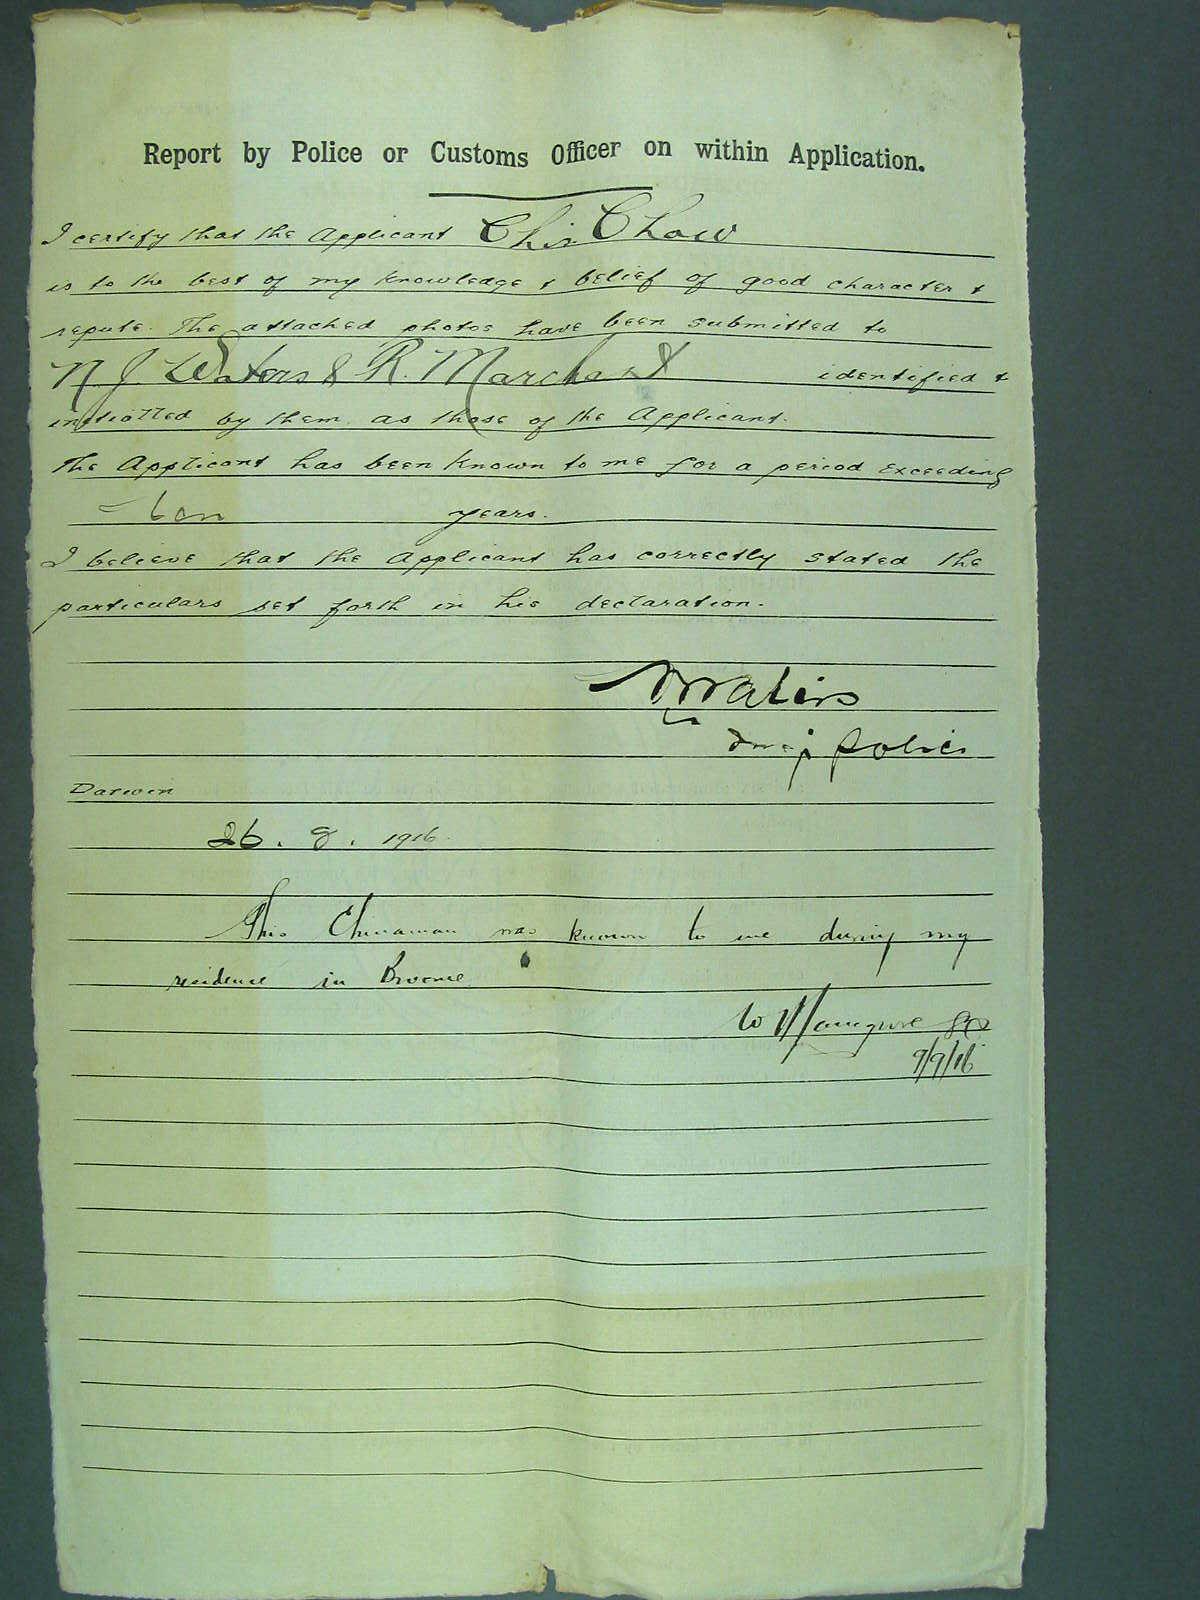 Report by Police or Customs Officer on within Application.
I certify that the Applicant Chin Chow
is to the best of my knowledge & belief of good character &
repute. The attached photos have been submitted to
N. J. Waters & R. Marchant identified &
initialled by them as those of the Applicant.
The Applicant has been known to me for a period exceeding
ten years.
I believe that the Applicant has correctly stated the
particulars set forth in his declaration.
Waters
Police
Darwin
26. 8. 1916.
This Chinaman was known to me during my
residence in Broome
W
9/9/16